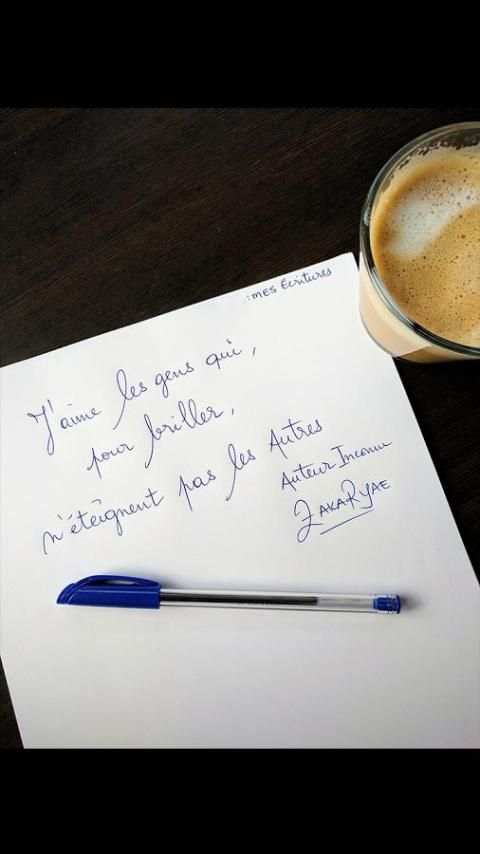 :MES Écritures
J'aime les gens qui,
pour briller,
n'éteignent pas les Autres
Auteur Inconnu
ZAKARYAE